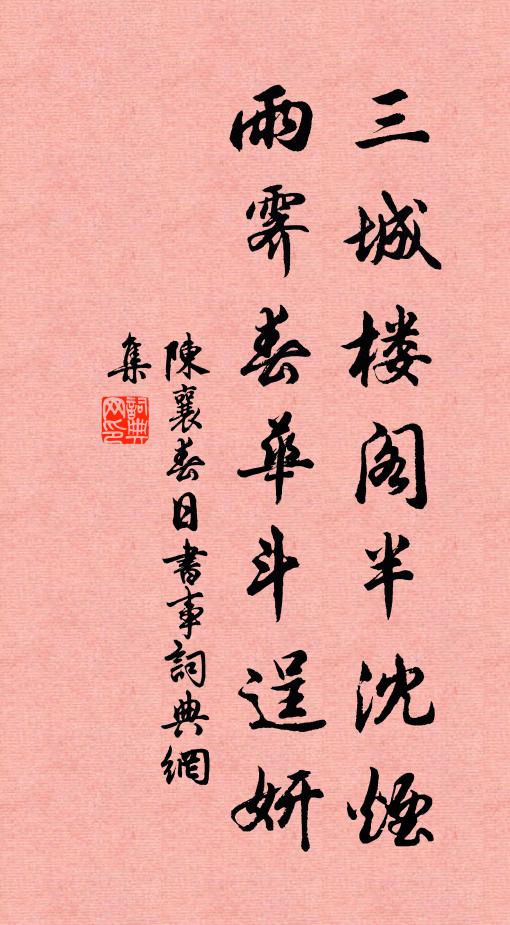 三城楼阁半沈烟
雨霁春华斗逞妍
陳襄春日書事詞典網
集
詞典網印